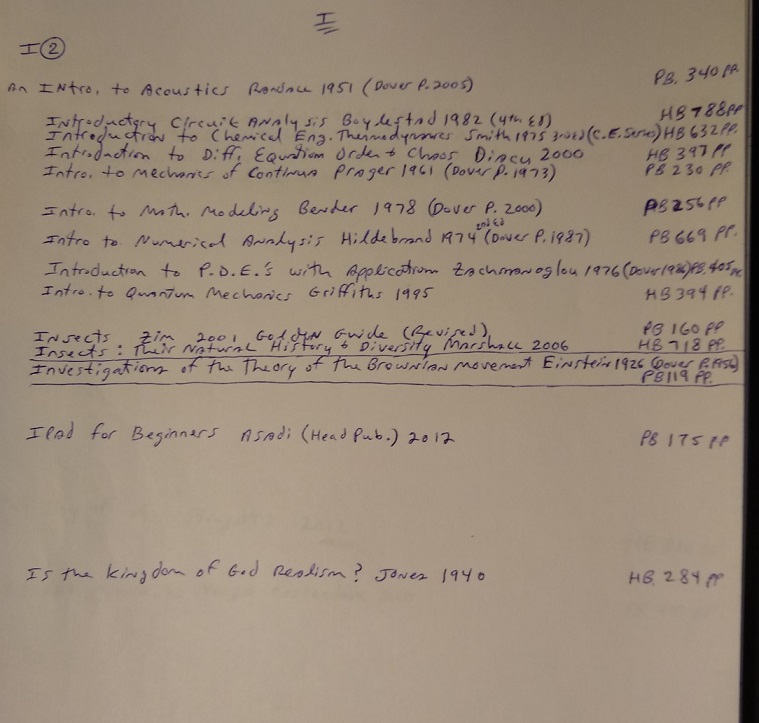 I
I ②
An Intro. to Acoustics Randall 1951 (Dover P. 2005) PB. 340 PP.
Introductory Circuit Analysis Boylestad 1982 (4th Ed) HB 788 PP
Introduction to Chemical Eng. Thermodynamics Smith 1975 3rd Ed (C.E. Series) HB 632 PP.
Introduction to Diff. Equation Order & Chaos Diacu 2000 HB 397 PP
Intro. to Mechanics of Continua Prager 1961 (Dover P. 1973) PB 230 PP.
Intro. to Math. Modeling Bender 1978 (Dover P. 2000) PB 256 PP
Intro to Numerical Analysis Hildebrand 1974 2nd Ed (Dover P. 1987) PB 669 PP.
Introduction to P.D.E.'s with Application Zachmanoglou 1976 (Dover 1986) PB. 405 PP.
Intro. to Quantum Mechanics Griffiths 1995 HB 394 PP.
Insects Zim 2001 Golden Guide (Revised) PB 160 PP
Insects: Their Natural History & Diversity Marshall 2006 HB 718 PP.
Investigations of the Theory of the Brownian Movement Einstein 1926 (Dover P. 1956)
PB 119 PP.
IPad for Beginners Asadi (Head Pub.) 2012 PB 175 PP
Is the Kingdom of God Realism? Jones 1940 HB. 284 PP